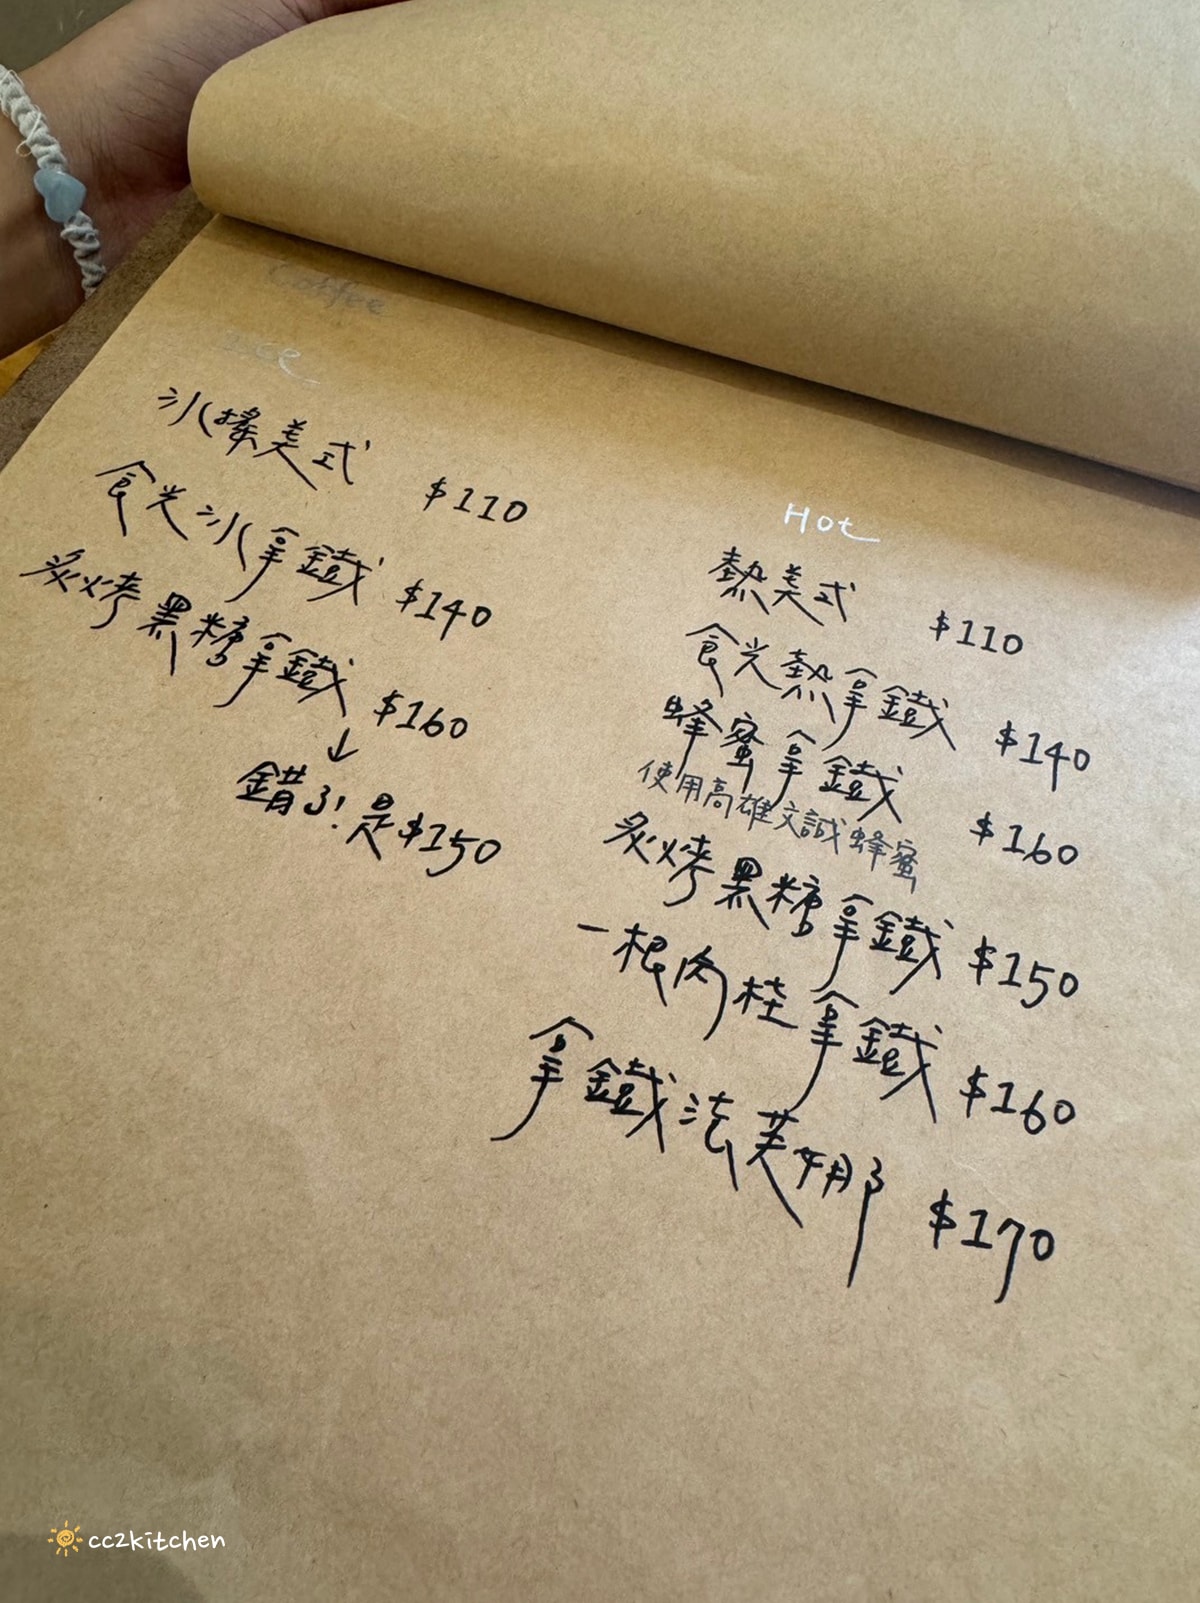 Coffee
Ice
冰搖美式 $110
食光冰拿鐵 $140
炙烤黑糖拿鐵 $160
↓
錯了!是$150
Hot
熱美式 $110
食光熱拿鐵 $140
蜂蜜拿鐵 $160
使用高雄文誠蜂蜜
炙烤黑糖拿鐵 $150
一根肉桂拿鐵 $160
拿鐵法芙娜 $170
cc2kitchen